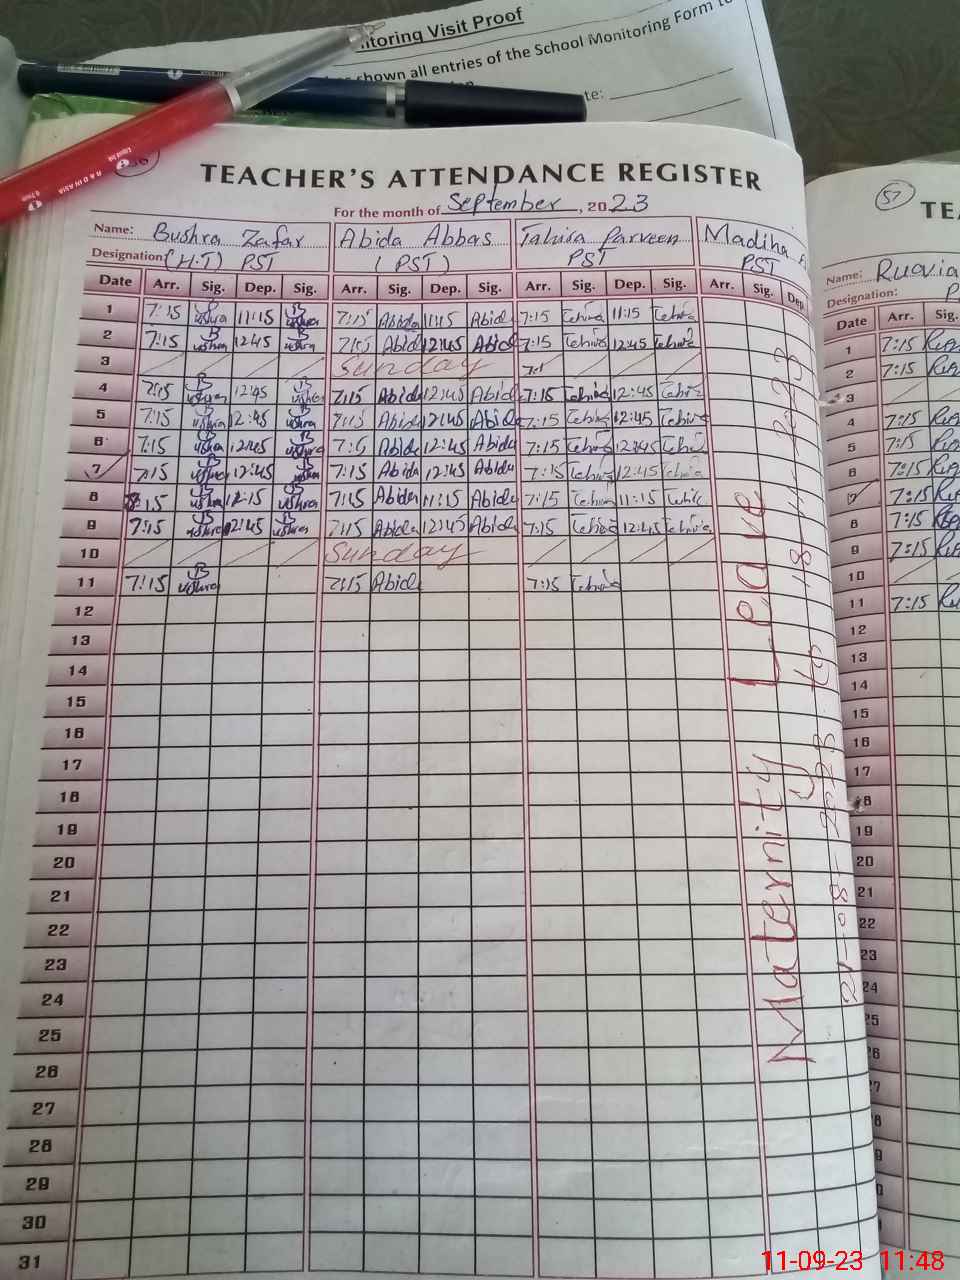 itoring Visit Proof
shown all entries of the School Monitoring Form to
te:
TEACHER'S ATTENDANCE REGISTER
For the month of September, 2023
Name: Bushra Zafar Abida Abbas Tahira Parveen Madiha
Designation: (H.T) PST (PST) PST PST
Date Arr. Sig. Dep. Sig. Arr. Sig. Dep. Sig. Arr. Sig. Dep. Sig. Arr. Sig. Dep
1 7:15 Bushra 11:15 Bushra 7:15 Abida 11:15 Abida 7:15 Tehira 11:15 Tehira
2 7:15 Bushra 12:45 Bushra 7:15 Abida 12:45 Abida 7:15 Tehira 12:45 Tehira
3 Sunday
4 7:15 Bushra 12:45 Bushra 7:15 Abida 12:45 Abida 7:15 Tehira 12:45 Tehira
5 7:15 Bushra 12:45 Bushra 7:15 Abida 12:45 Abida 7:15 Tehira 12:45 Tehira
6 7:15 Bushra 12:45 Bushra 7:15 Abida 12:45 Abida 7:15 Tehira 12:45 Tehira
7 7:15 Bushra 12:45 Bushra 7:15 Abida 12:45 Abida 7:15 Tehira 12:45 Tehira
8 Bushra Bushra Abida 11:15 Abida 7:15 Tehira 11:15
9 7:15 Bushra 12:45 Bushra 7:15 Abida 12:45 Abida 7:15 Tehira 12:45 Tehira
10 Sunday
11 7:15 Bushra 7:15 Abida 7:15 Tehira
12
13
14
15
16
17
18
19
20
21
22
23
24
25
26
27
28
29
30
31
Maternity Leave
57
TE
Name: Ruqia
Designation: P
Date Arr. Sig.
1 7:15
2 7:15
3
4 7:15
5 7:15
6 7:15
7 7:15
8 7:15
9 7:15
10
11 7:15
12
13
14
15
16
17
18
19
20
21
22
23
24
25
26
11-09-23 11:48